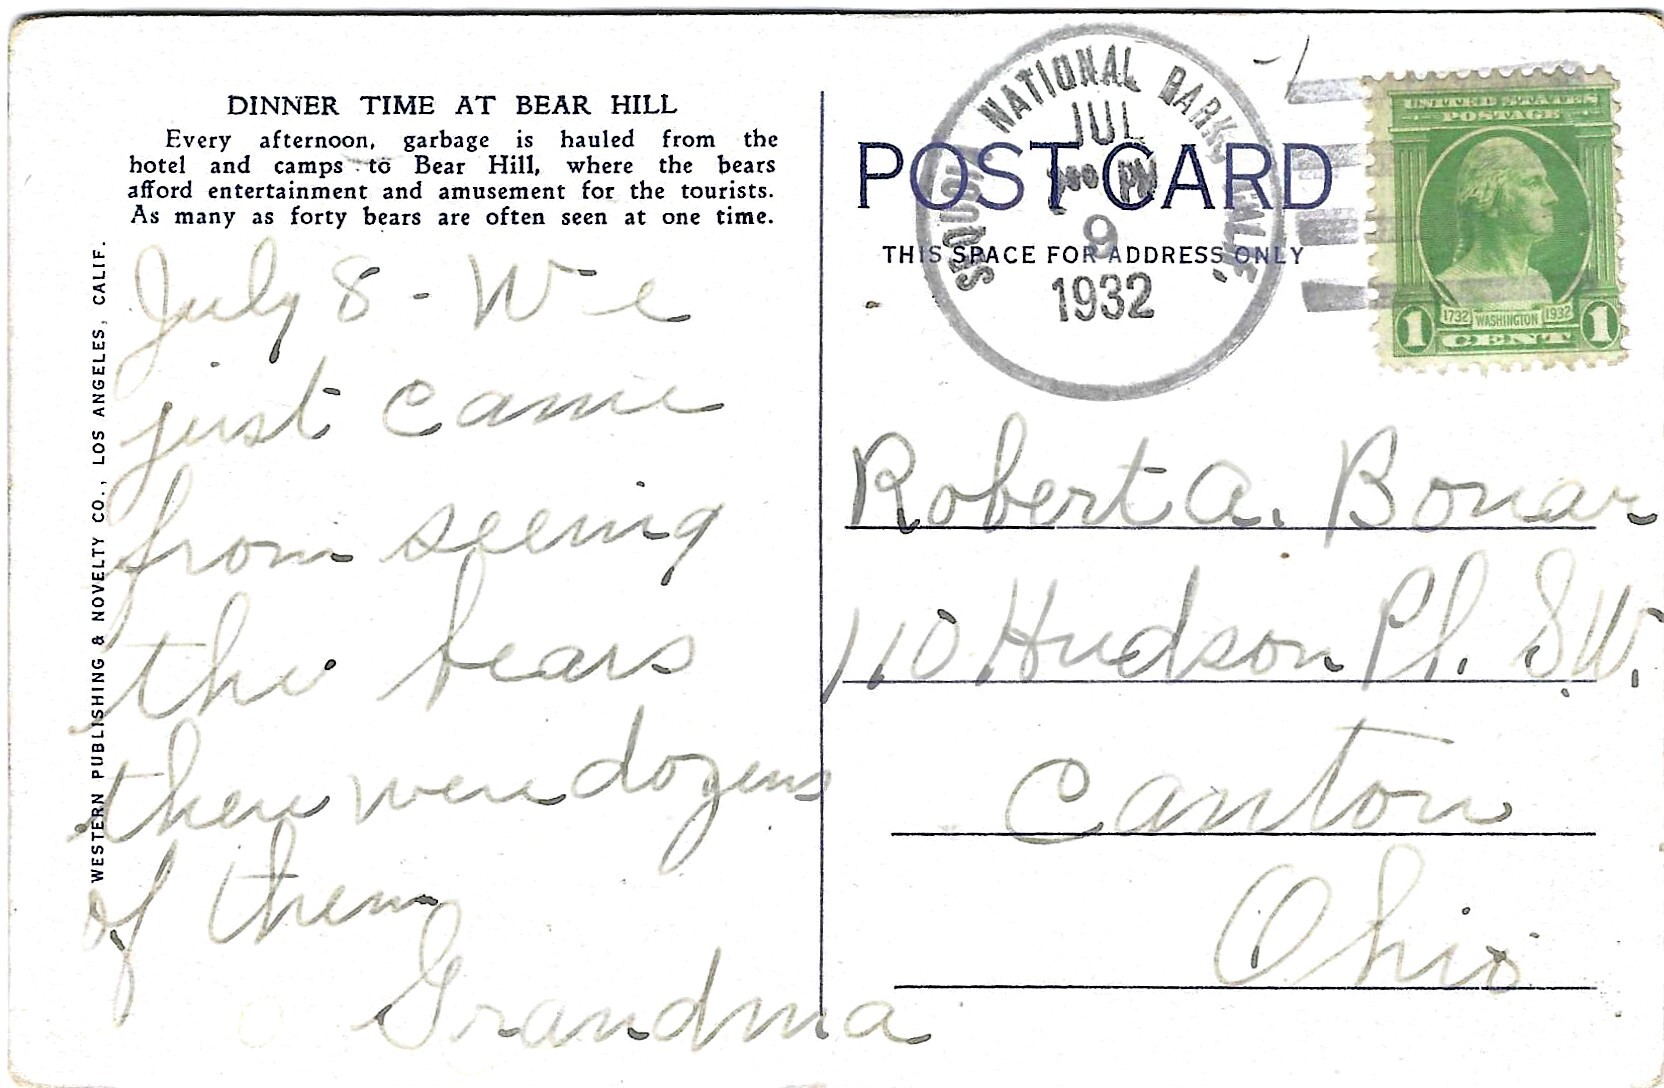 DINNER TIME AT BEAR HILL
Every afternoon, garbage is hauled from the
hotel and camps to Bear Hill, where the bears
afford entertainment and amusement for the tourists.
As many as forty bears are often seen at one time.
WESTERN PUBLISHING & NOVELTY CO., LOS ANGELES, CALIF.
July 8 - We
just came
from seeing
the bears
there were dozens
of them
Grandma
SEQUOIA NATIONAL PARK, CALIF.
JUL
PM
9
1932
POST CARD
THIS SPACE FOR ADDRESS ONLY
UNITED STATES
POSTAGE
1732 WASHINGTON 1932
1 CENT 1
Robert A. Bonar
110 Hudson Pl. S.W.
Canton
Ohio